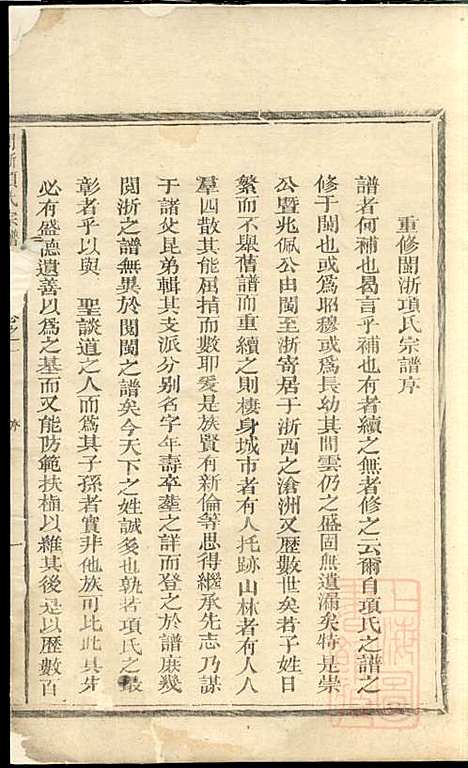 重修閩浙項氏宗譜序
譜者何補也曷言乎補也有者續之無者修之云爾自項氏之譜之
修于閩也或為昭穆或為長幼其間雲仍之盛固無遺漏矣特是崇
公暨兆佩公由閩至浙寄居于浙西之滄洲又歷數世矣若子姓日
繁而不舉舊譜而重續之則棲身城市者有人托跡山林者有人人
羣四散其能屈指而數耶爰是族賢有新倫等思得繼承先志乃謀
于諸父昆弟輯其支派分别名字年壽卒塟之詳而登之於譜庶幾
閱浙之譜無異於閱閩之譜矣今天下之姓誠多也孰若項氏之最
彰者乎以與 聖談道之人而為其子孫者實非他族可比此其先
必有盛德遺善以為之基而又能防範扶植以維其後是以歷數百
閩浙項氏宗譜 卷之一 序 一
上海圖書館藏